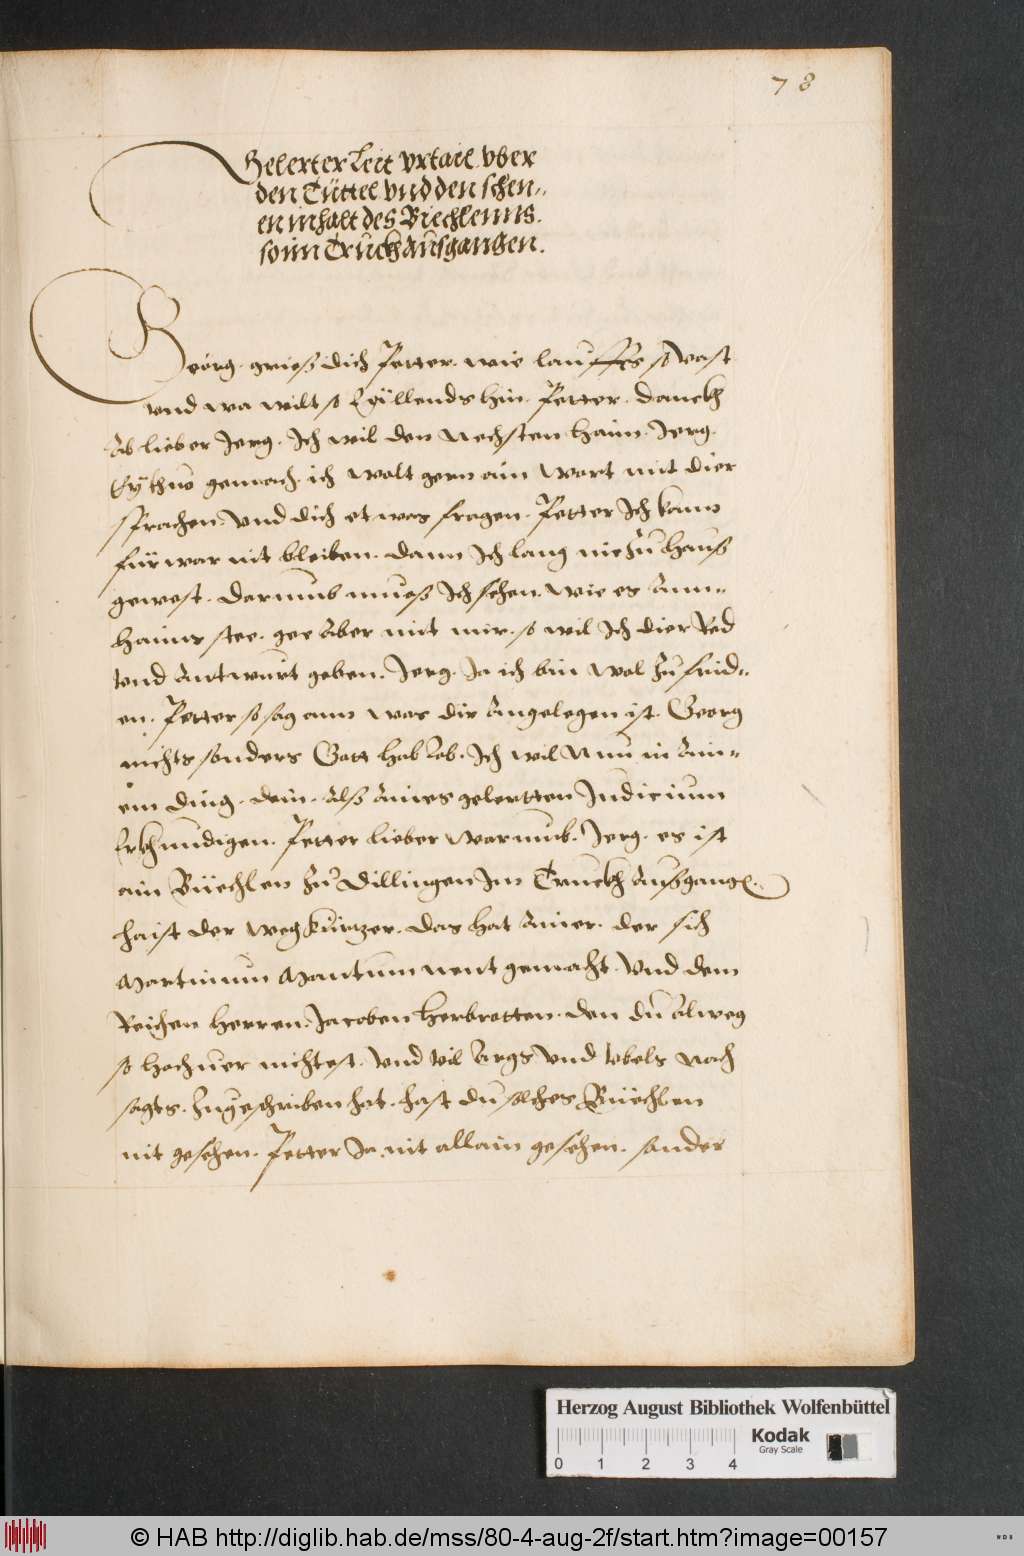 78
Gelerter Leit vrtail vber
den Tüttel vnd den schen„
en inhalt des Biechlenns.
so im Truckh Ausgangen.
Georg. grieß dich Petter. wie lauffts so vast
vnd wa wilt so Eyllends hin. Petter. danckh
Ab lieber Jerg. Ich wil den nechsten haim. Jerg.
Ey thuo gemach. ich wolt gern ain wort mit dier
sprachen. Vnd dich etwas fragen. Petter Ich kann
fürwar nit bleiben. dann Ich lang nie Zu hauß
gewest. darumb mueß Ich sehen. wie es Ann„
haims stee. gee Aber mit mir. so wil Ich dier Red
vnd Antwurt geben. Jerg. Ja ich bin wol Zu frid„
en. Petter so sag ann was dir Angelegen ist. Georg
nichts sonders Gott hab Lob. Ich wil nun in Ain„
em ding. dein. Alß Aines gelertten Judicium
Erkhundigen. Petter lieber warumb. Jerg. es ist
ain Büechlen Zu Dillingen Im Truckh Außgangen.
haist der wegkürtzer. das hat Ainer. der sich
Martinum Montanum nent gemacht. Vnd dem
Reichen herren. Jacoben herbrotten. den du Alweg
so hoch vernichtest. Vnd vil Args Vnd vbels nach
sagts. Zugeschriben hat. hast du solches Büechlen
nit gesehen. Petter Ja. nit allain gesehen. sonder
Herzog August Bibliothek Wolfenbüttel
Kodak
Gray Scale
0 1 2 3 4
© HAB http://diglib.hab.de/mss/80-4-aug-2f/start.htm?image=00157